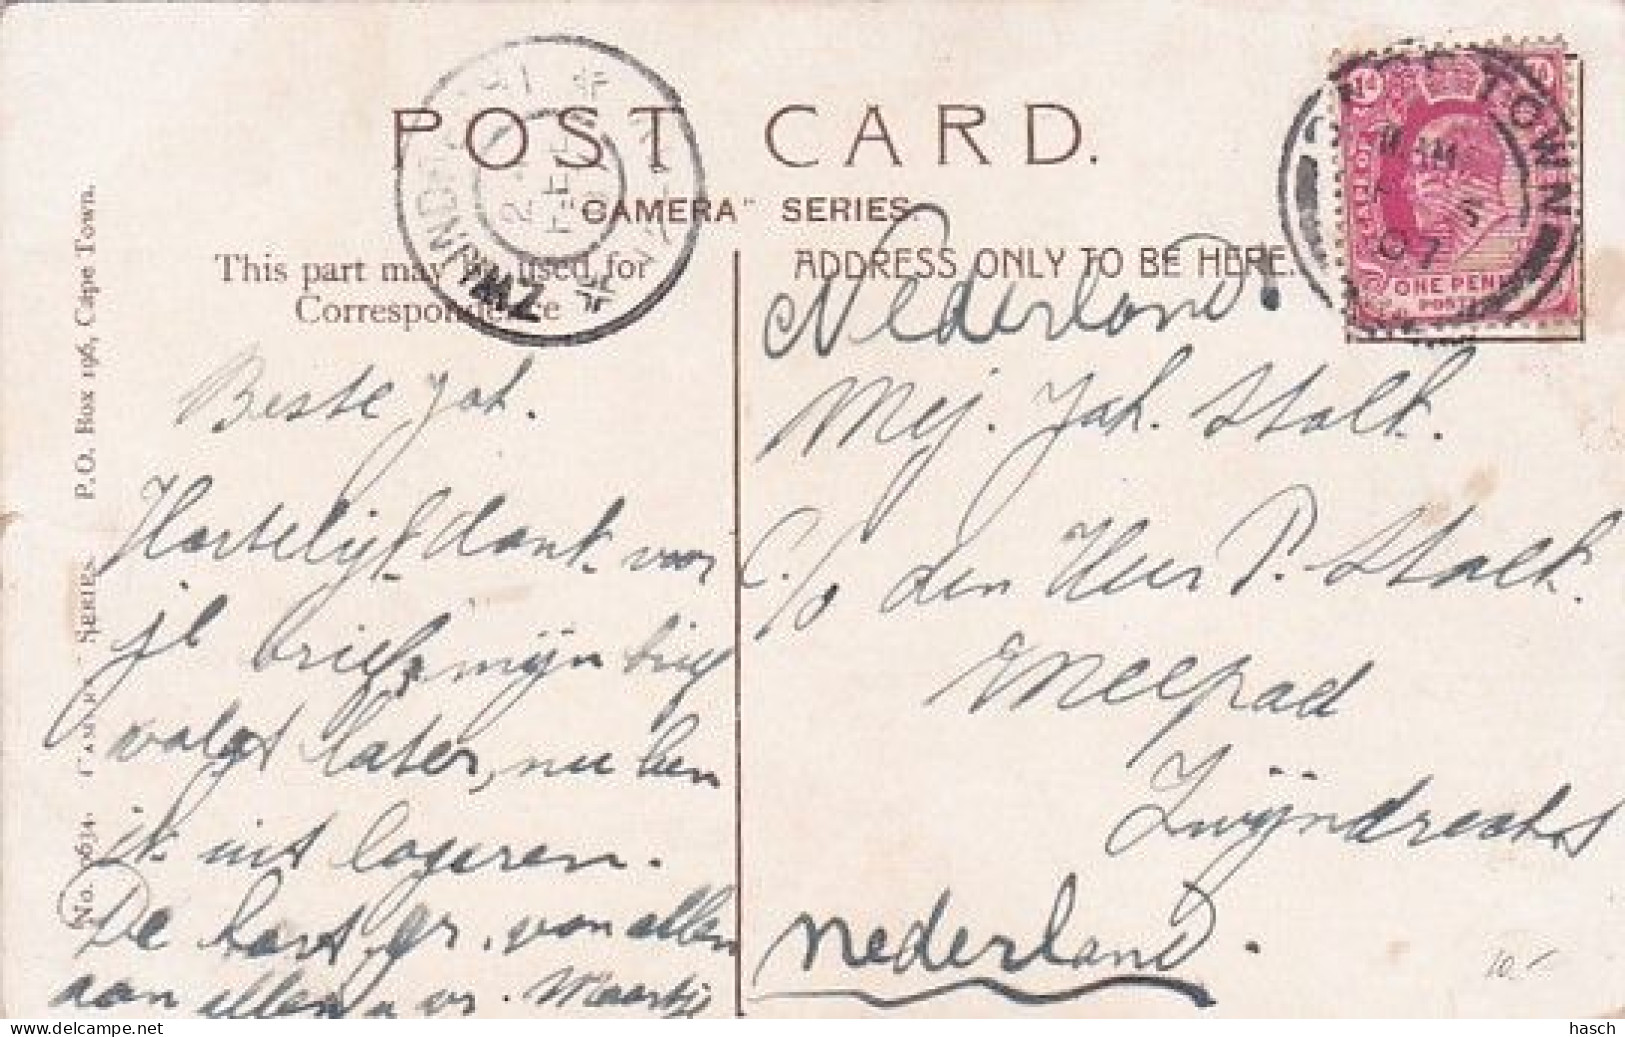 POST CARD.
"CAMERA" SERIES.
This part may be used for
Correspondence
ADDRESS ONLY TO BE HERE.
TOWN
07
ONE PENNY
POSTA
No. 2634. CAMERA SERIES. P.O. Box 196, Cape Town.
Beste Joh.
Hartelijk dank voor
je brief, mijn brief
volgt later, nu ben
ik uit logeren.
De hart. gr. van allen
aan allen
Maartje
Nederland.
Mej. Joh. Stolk.
c/o den Heer P. Stolk.
Meerpad
Zwijndrecht
Nederland.
10.-
hasch